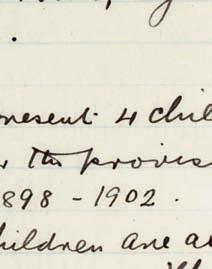 .
present 4 chil
the provis
1898 - 1902.
children are a